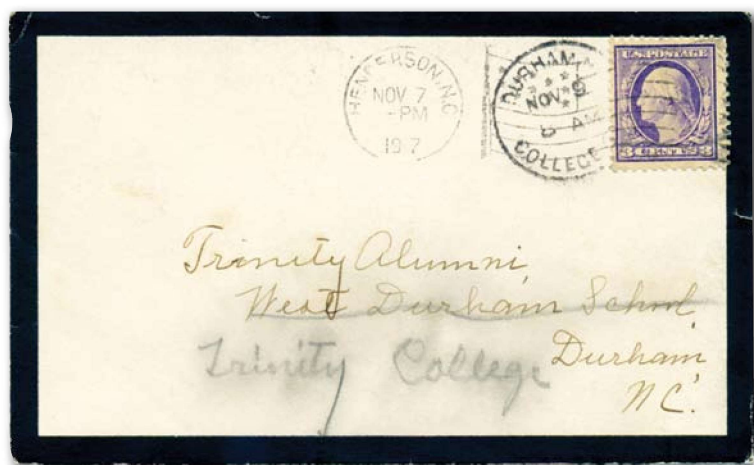 HENDERSON, N.C.
NOV 7
-PM
19 7
DURHAM
NOV 9
8 AM
COLLEGE
U.S. POSTAGE
3 CENTS 3
Trinity Alumni,
West Durham School
Trinity College
Durham
N.C.